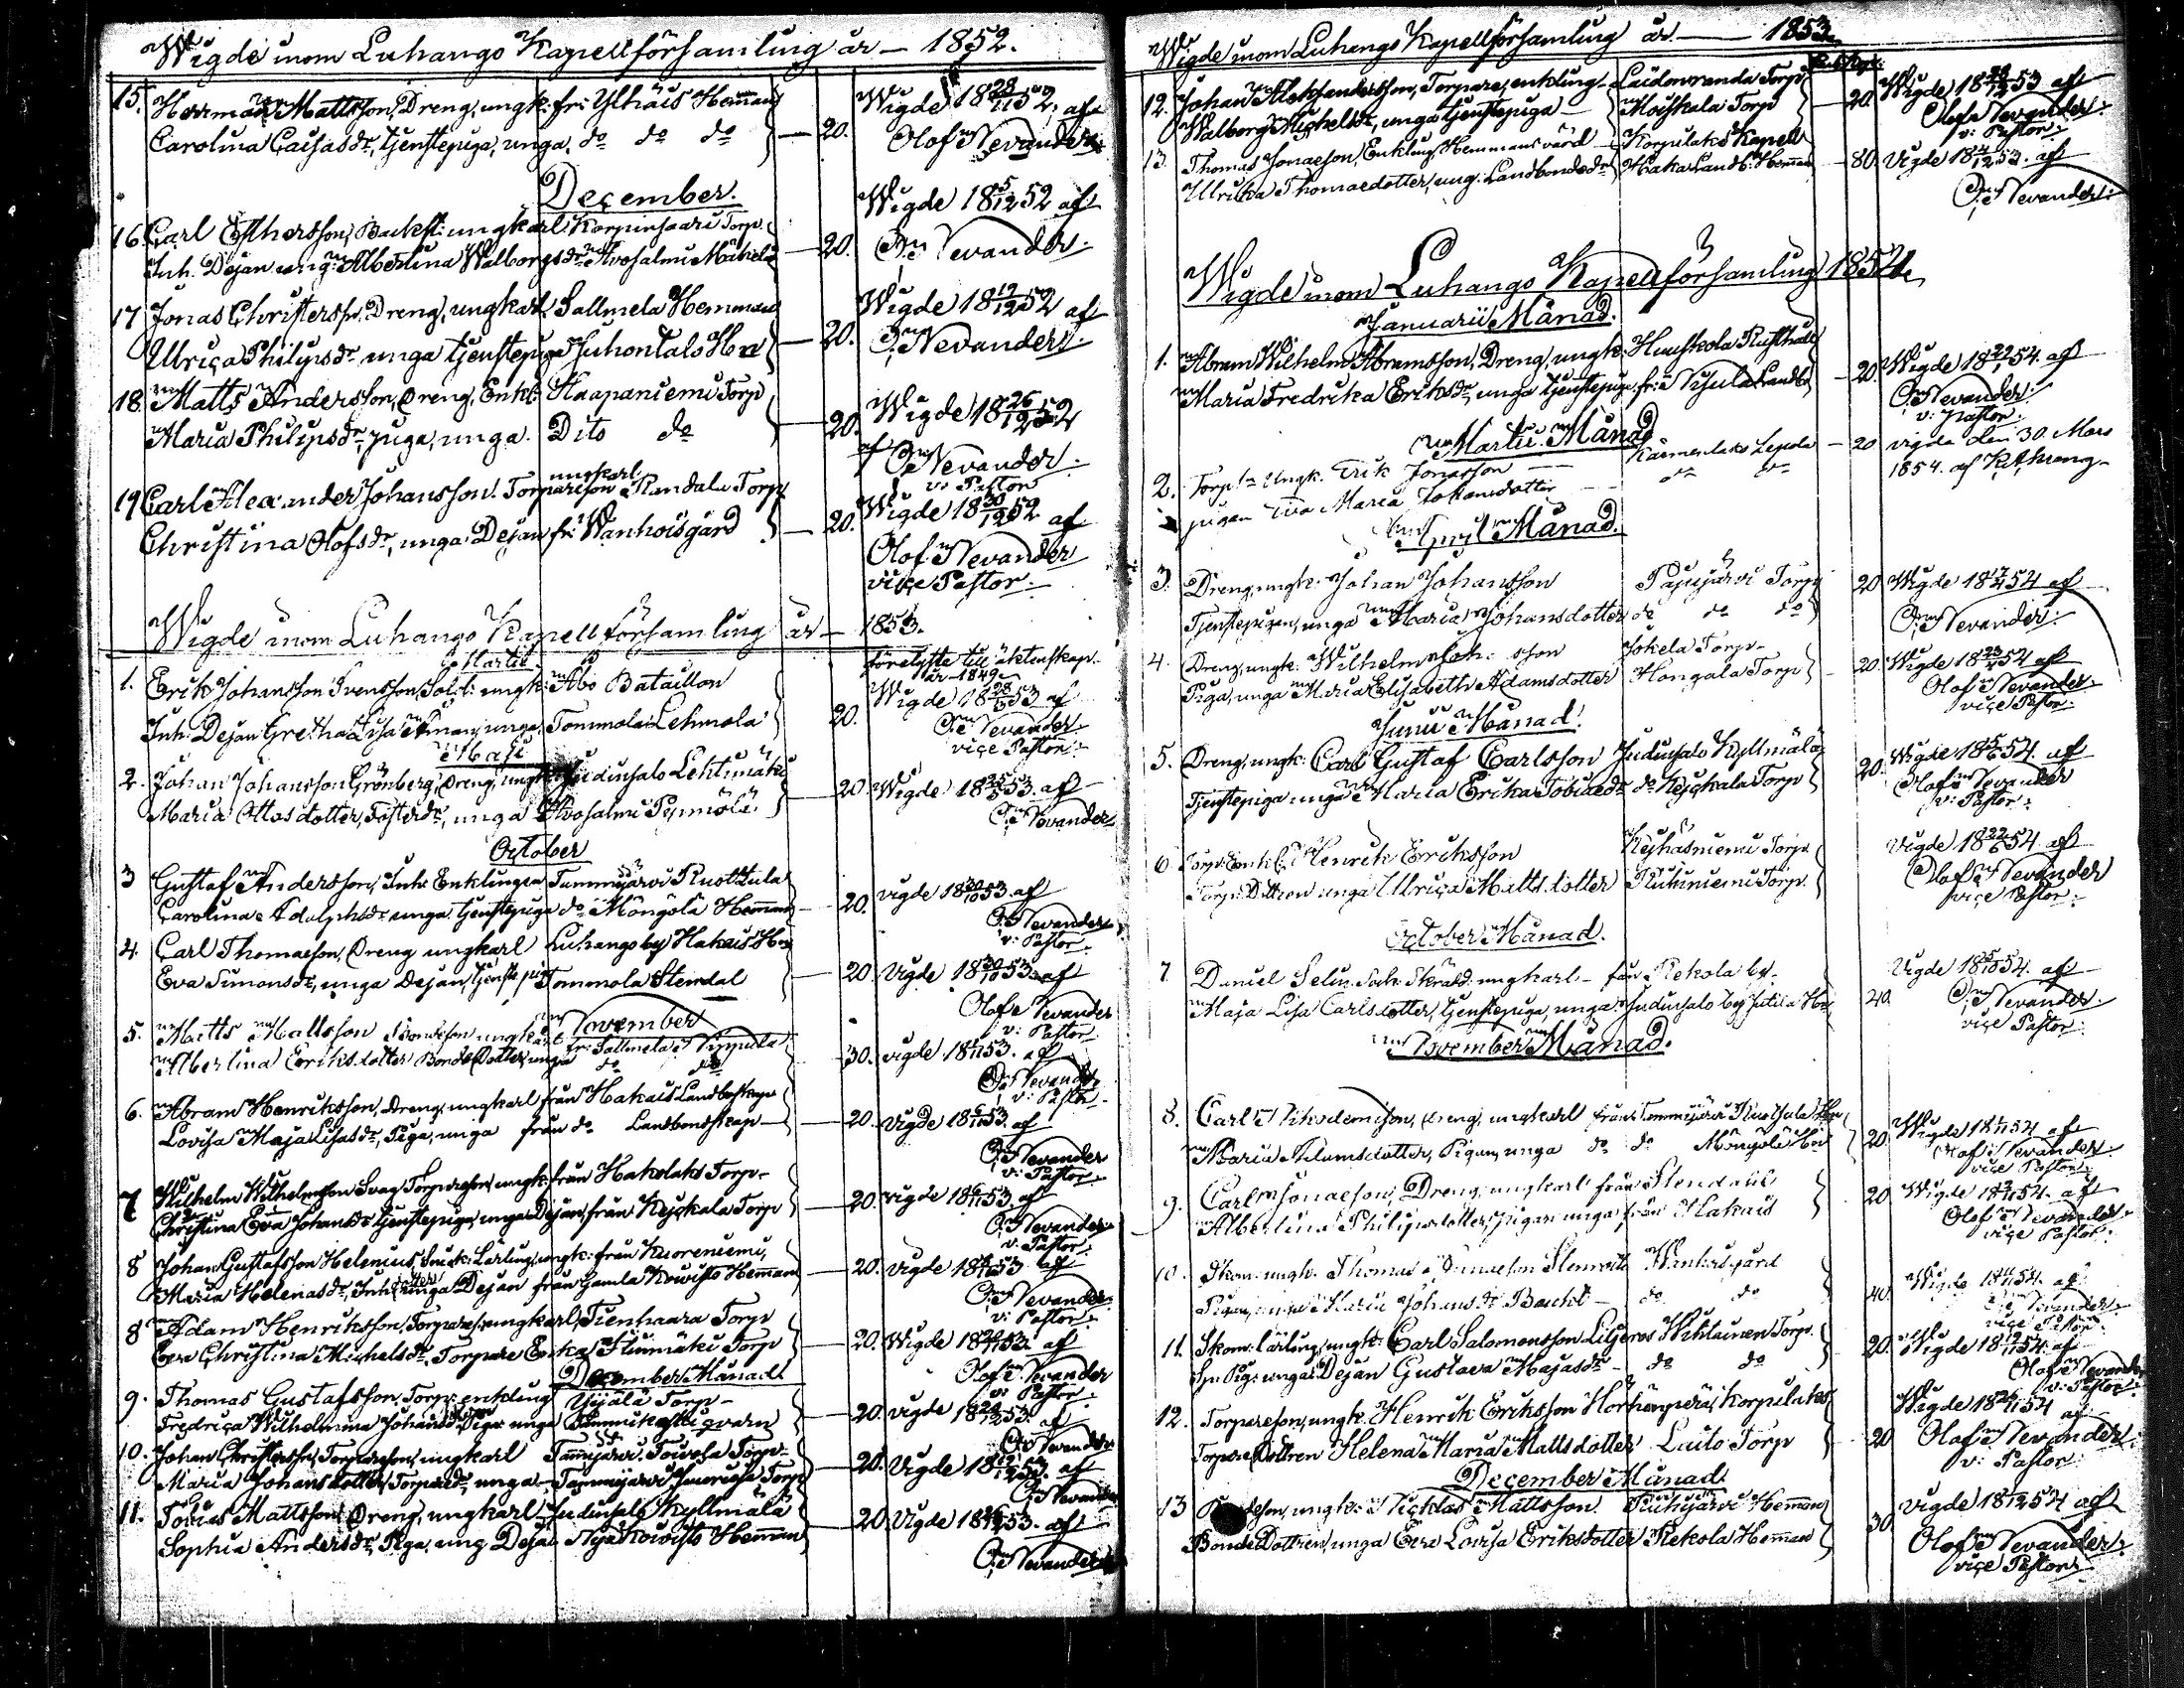 Wigde inom Luhango Kapellförsamling år — 1852.
15. Herman Mattsson, Dreng, ungk: fr: Ylhäis Hemman
Carolina Caisasdr, tjenstepiga, unga, do do do — 20.
Wigde 18 28/11 52, af
Olof Nevander.
December.
16. Carl Esthersson, ungkarl Korpinsaari Torp
Inh. Dejan ung: Albertina Walborgsdr Avosalmi Mäkelä — 20.
Wigde 18 5/12 52 af
O: Nevander.
17 Jonas Christersson, Dreng, ungkarl, Sallmela Hemman
Ulrica Philipsdr unga tjenstepiga Juhontalo — 20.
Wigde 18 19/12 52 af
O: Nevander.
18. Matts Andersson, Dreng, Enkl: Haapaniemi Torp
Maria Philipsdr, piga, unga. Dito do — 20.
Wigde 18 26/12 52
af O: Nevander.
v: Pastor
ungkarl,
19 Carl Alexander Johansson. Torpareson Randala Torp
Christina Olofsdr, unga Dejan fr: Wanhoisgård — 20.
Wigde 18 30/12 52 af
Olof Nevander
vice Pastor.
Wigde inom Luhango Kapellförsamling år — 1853.
Martii
förelyste till äktenskap
år 1849
1. Erik Johansson Svensson, Sold: ungk: Åbo Bataillon
Inh: Dejan Gretha Lisa unga, Tommola Lehmola 20.
Wigde 18 28/3 53 af
O: Nevander.
vice Pastor.
Maji
2. Johan Johansson Grönberg, Dreng, ungk: Judinsalo Lehtimäki
Maria Ottosdotter, Fosterdr, unga Avosalmi — 20
Wigde 18 25/5 53. af
O: Nevander
October
3 Gustaf Andersson, Inh: Enklingen Tammijärvi Rusttula
Carolina Adolphsdr unga tjenstepiga do Möngölä Hemman — 20.
vigde 18 30/10 53 af
O: Nevander
v: Pastor.
4. Carl Thomasson, Dreng ungkarl Luhango by Hakais
Eva Simonsdr, unga Dejan, tjenstepiga Tommola Stendal — 20
vigde 18 30/10 53 af
Olof Nevander
v: Pastor.
November
5. Matts Mattsson Bondeson ungkarl fr: Sallmela
Albertina Eriksdotter Bonde Dotter, unga do do 30.
vigde 53. af
O: Nevander
v: Pastor.
6. Abram Henriksson, Dreng, ungkarl från Hakais Landbolägenhet
Lovisa Maja Lisasdr, Piga, unga från do Landbondskap — 20
vigde 18 6/11 53. af
O: Nevander
v: Pastor.
7 Wilhelm Wilhelmsson Torpareson ungk: från Hakolaks Torp
Christina Eva Johansdr tjenstepiga, unga Dejan, från Kejskala Torp — 20.
vigde 53 af
O: Nevander
v: Pastor.
8 Johan Gustafsson Helenius, Smeds: Lärling, ungk: från Kuoreniemi
Maria Helenasdr, Inh: dotter unga Dejan från Gamla Kowisto Hemman — 20.
vigde 53 af
O: Nevander
v: Pastor.
8 Adam Henriksson, Torpareson ungkarl, Tienhaara Torp
Eva Christina Michelsdr, Torpare Enka Torp — 20.
Wigde 53. af
Olof Nevander
v: Pastor.
December Månad.
9. Thomas Gustafsson, Torp: enkling Yijälä Torp
Fredrica Wilhelmina Johansdr Piga unga qvarn — 20.
vigde 53. af
O: Nevander
10. Johan Christersson, Torpareson, ungkarl Tammijärvi Touvola Torp
Maria Johansdotter, Torparedr, unga — Tammijärvi Torp — 20.
vigde 53. af
O: Nevander
11. Tobias Mattsson, Dreng, ungkarl Judinsalo Kyllmälä
Sophia Andersdr, Piga, ung Dejan Nya Kowisto Hemman — 20.
vigde 18 26/12 53. af
O: Nevander
Wigde inom Luhango Kapellförsamling år — 1853.
12. Johan Alexandersson, Torpare, enkling — Laidonranda Torp
Walborg Michelsdr, unga tjenstepiga — Moiskala Torp — 20.
Wigde 53 af
Olof Nevander.
v: Pastor.
13. Thomas Jonasson, Enkling, Hemmansvärd — Korpilaks Kapell
Ulrika Thomasdotter, ung: Landbondedr Haka Landb: Hemman — 80.
Vigde 18 4/12 53. af
O: Nevander.
Wigde inom Luhango Kapellförsamling 1854.
Januarii Månad.
1. Abram Wilhelm Abramsson, Dreng, ungk: Huuskola Rusthåll
Maria Fredrika Eriksdr, unga tjenstepiga, fr: Landb: — 20.
Wigde 18 22/1 54. af
O: Nevander.
v: pastor.
Martii Månad
2. Torp:n Ungk. Erik Jonasson — Kärmenlaks Lepola — 20
pigan Eva Maria Johansdotter do do
vigda den 30. Mars
1854. af
April Månad.
3. Dreng, ungk: Johan Johansson Papujärvi Torp 20
Tjenstepigan, unga Maria Johansdotter do do do
Wigde 54 af
O: Nevander.
4. Dreng, ungk: Wilhelm Joh: sson Jokela Torp 20.
Piga, unga Maria Elisabeth Adamsdotter Hongala Torp
Wigde 18 23/4 54 af
Olof Nevander.
vice Pastor.
Junii Månad.
5. Dreng, ungk: Carl Gustaf Carlsson Judinsalo Kyllmälä
Tjenstepiga unga Maria Erika Tobiasdr do Kejskala Torp 20.
Wigde 18 5/6 54. af
Olof Nevander
v: Pastor.
6. Torp: Enkl: Henrik Eriksson Kejhäsniemi Torp
Torp: Dottren unga Ulrica Mattsdotter Torp.
Vigde 18 22/6 54. af
Olof Nevander
vice Pastor.
October Månad.
7 Daniel Selin Sock: Skräd: ungkarl — från Rekola by.
Maja Lisa Carlsdotter, tjenstepiga, unga Judinsalo by 40.
Vigde 54. af
O: Nevander.
vice Pastor.
November Månad.
8. Carl Nikodemisson, Dreng, ungkarl från Tammijärvi
Maria Adamsdotter, Pigan, unga do do Möngölä 20.
Wigde 54 af
Olof Nevander.
vice Pastor.
9. Carl Jonasson, Dreng, ungkarl från Stendahl
Albertina Philipsdotter, Pigan unga från Hakais 20
Wigde 54. af
Olof Nevander.
vice Pastor.
10. Skom: ungk: Thomas Stenroth Wanhoisgård
Pigan, unga Maria Johansdr do do 40
Wigde 54. af
Nevander.
vice Pastor.
11. Skom: lärling, ungk: Carl Salomonsson Liljeros Wihlainen Torp.
Pig: unga Dejan Gustava Majasdr — do do 20.
Wigde 54. af
Olof Nevander
v: Pastor.
12. Torpareson, ungk: Henrik Eriksson Korpilaks
Torpare Dottren Helena Maria Mattsdotter Luito Torp 20
Wigde 18 26/11 54 af
Olof Nevander.
v: Pastor.
December Månad.
13 ungk: Nicklas Mattsson Hemman
Bonde Dottren, unga Eva Lovisa Eriksdotter Rekola Hemman 30
vigde 54 af
Olof Nevander.
vice Pastor.